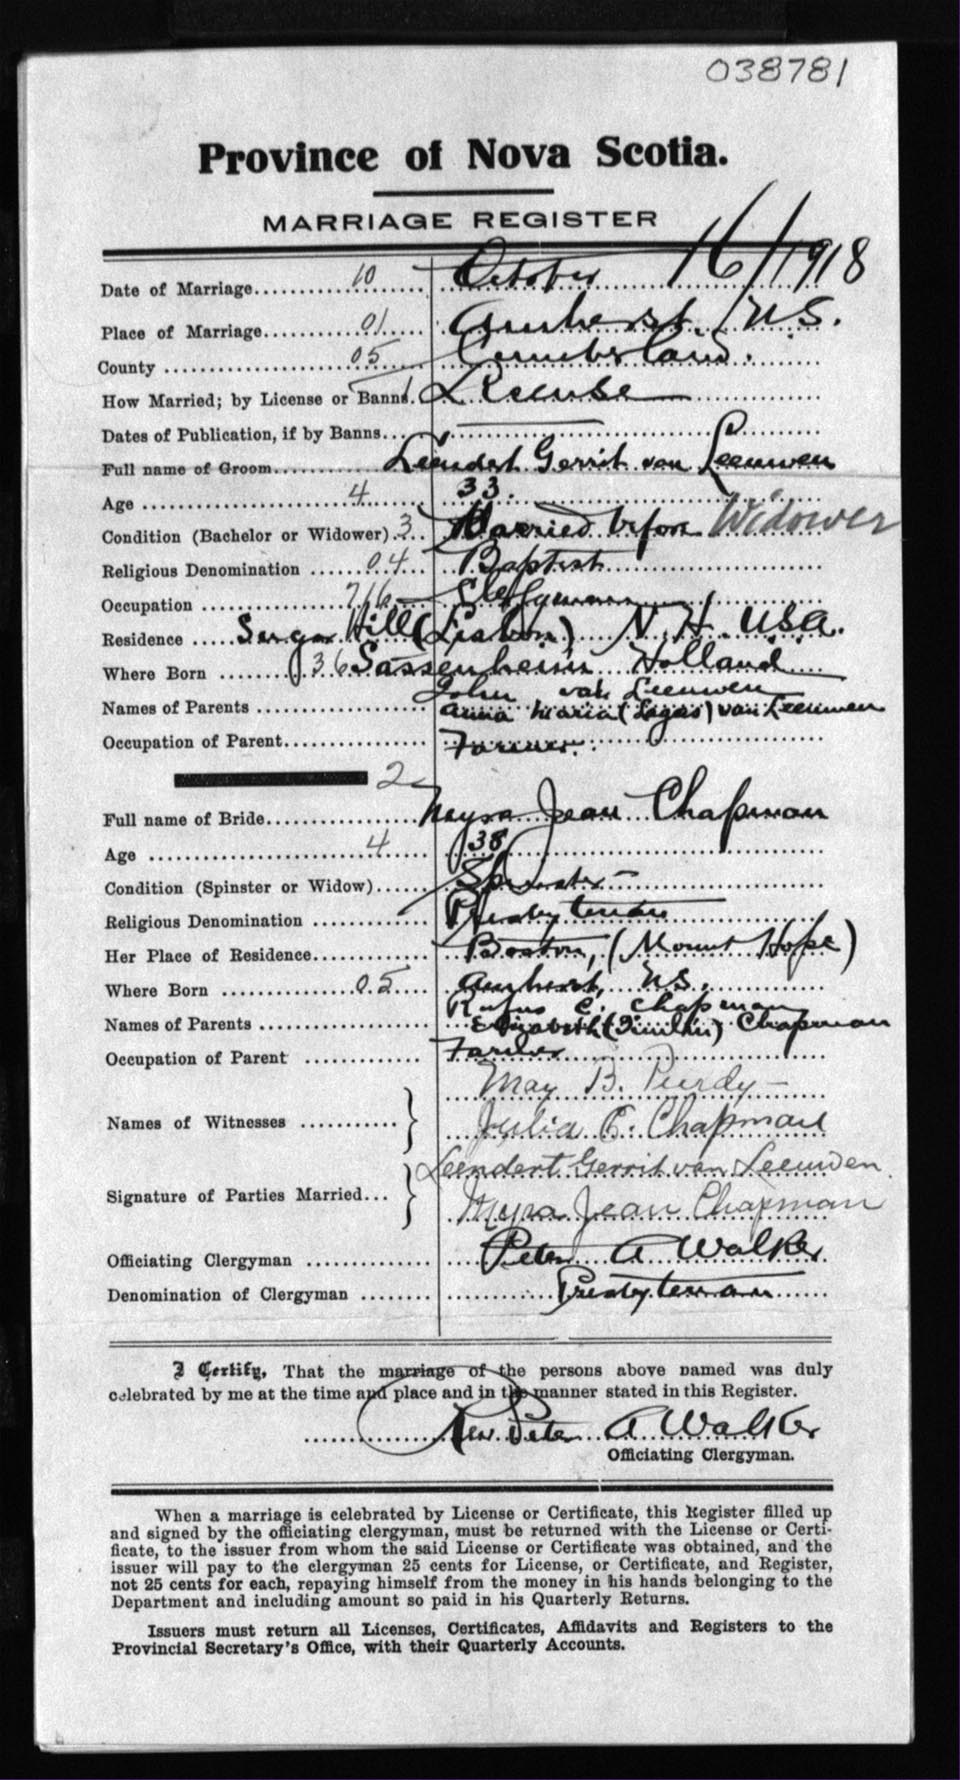 038781
Province of Nova Scotia.
MARRIAGE REGISTER
Date of Marriage 10 October 16/1918
Place of Marriage 01 Amherst, N.S.
County 05 Cumberland.
How Married; by License or Banns. 1 License
Dates of Publication, if by Banns
Full name of Groom Leendert Gerrit van Leeuwen
Age 4 33.
Condition (Bachelor or Widower) 3 Married before Widower
Religious Denomination 04 Baptist
Occupation 716 Clergyman
Residence Hill (Lisbon) N.H. USA.
Where Born 36 Sassenheim Holland
Names of Parents John van Leeuwen
Anna Maria ( ) van Leeuwen
Occupation of Parent Farmer.
2
Full name of Bride Myra Jean Chapman
Age 4 38
Condition (Spinster or Widow) Spinster
Religious Denomination Presbyterian
Her Place of Residence Boston, (Mount Hope)
Where Born 05 Amherst, N.S.
Names of Parents Rufus C. Chapman
Elizabeth ( ) Chapman
Occupation of Parent Farmer
Names of Witnesses May B. Purdy
Julia C. Chapman
Signature of Parties Married Leendert Gerrit van Leeuwen
Myra Jean Chapman
Officiating Clergyman Peter A Walker
Denomination of Clergyman Presbyterian
I Certify, That the marriage of the persons above named was duly
celebrated by me at the time and place and in the manner stated in this Register.
Rev. Peter A Walker
Officiating Clergyman.
When a marriage is celebrated by License or Certificate, this Register filled up
and signed by the officiating clergyman, must be returned with the License or Certi-
ficate, to the issuer from whom the said License or Certificate was obtained, and the
issuer will pay to the clergyman 25 cents for License, or Certificate, and Register,
not 25 cents for each, repaying himself from the money in his hands belonging to the
Department and including amount so paid in his Quarterly Returns.
Issuers must return all Licenses, Certificates, Affidavits and Registers to the
Provincial Secretary's Office, with their Quarterly Accounts.